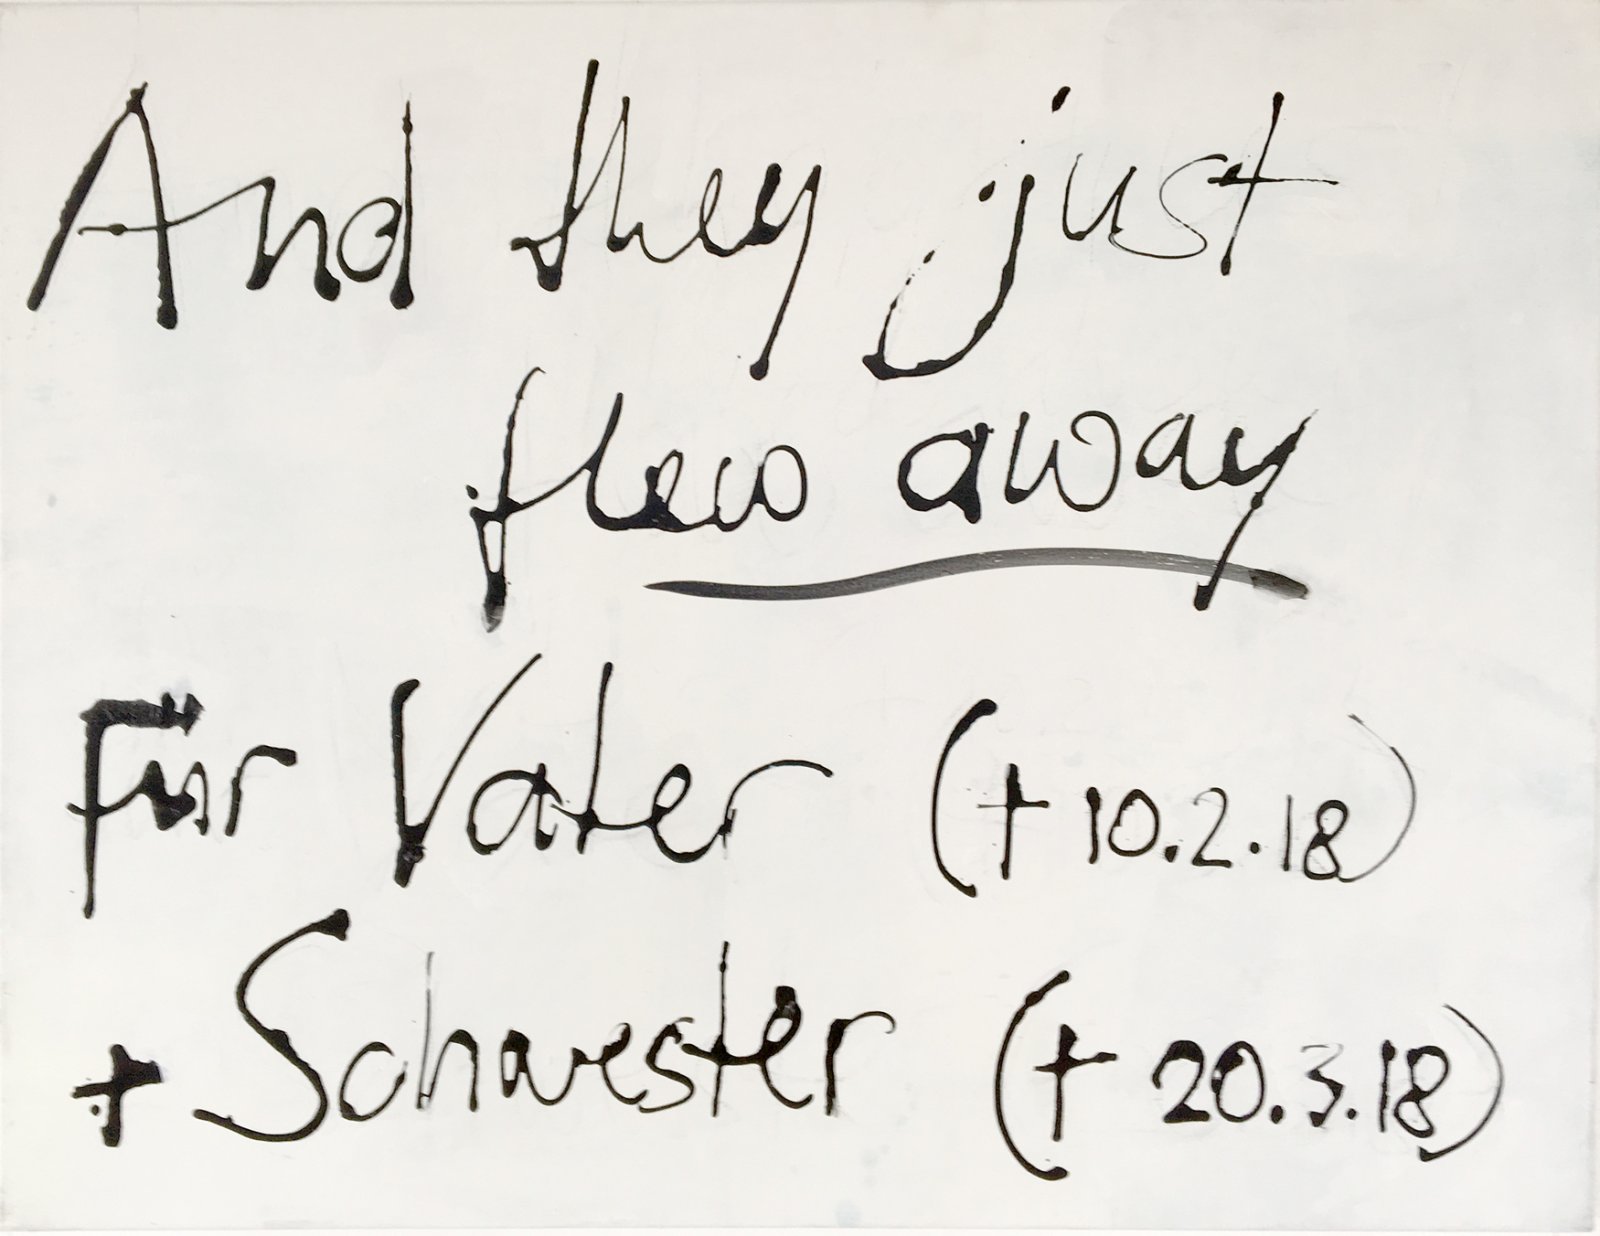 And they just
flew away
Für Vater († 10.2.18)
+ Schwester († 20.3.18)